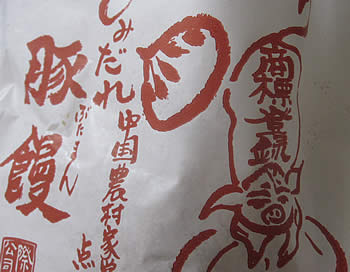 商標登録
中国農村家常点
しみだれ
豚饅
ぶたまん
公司